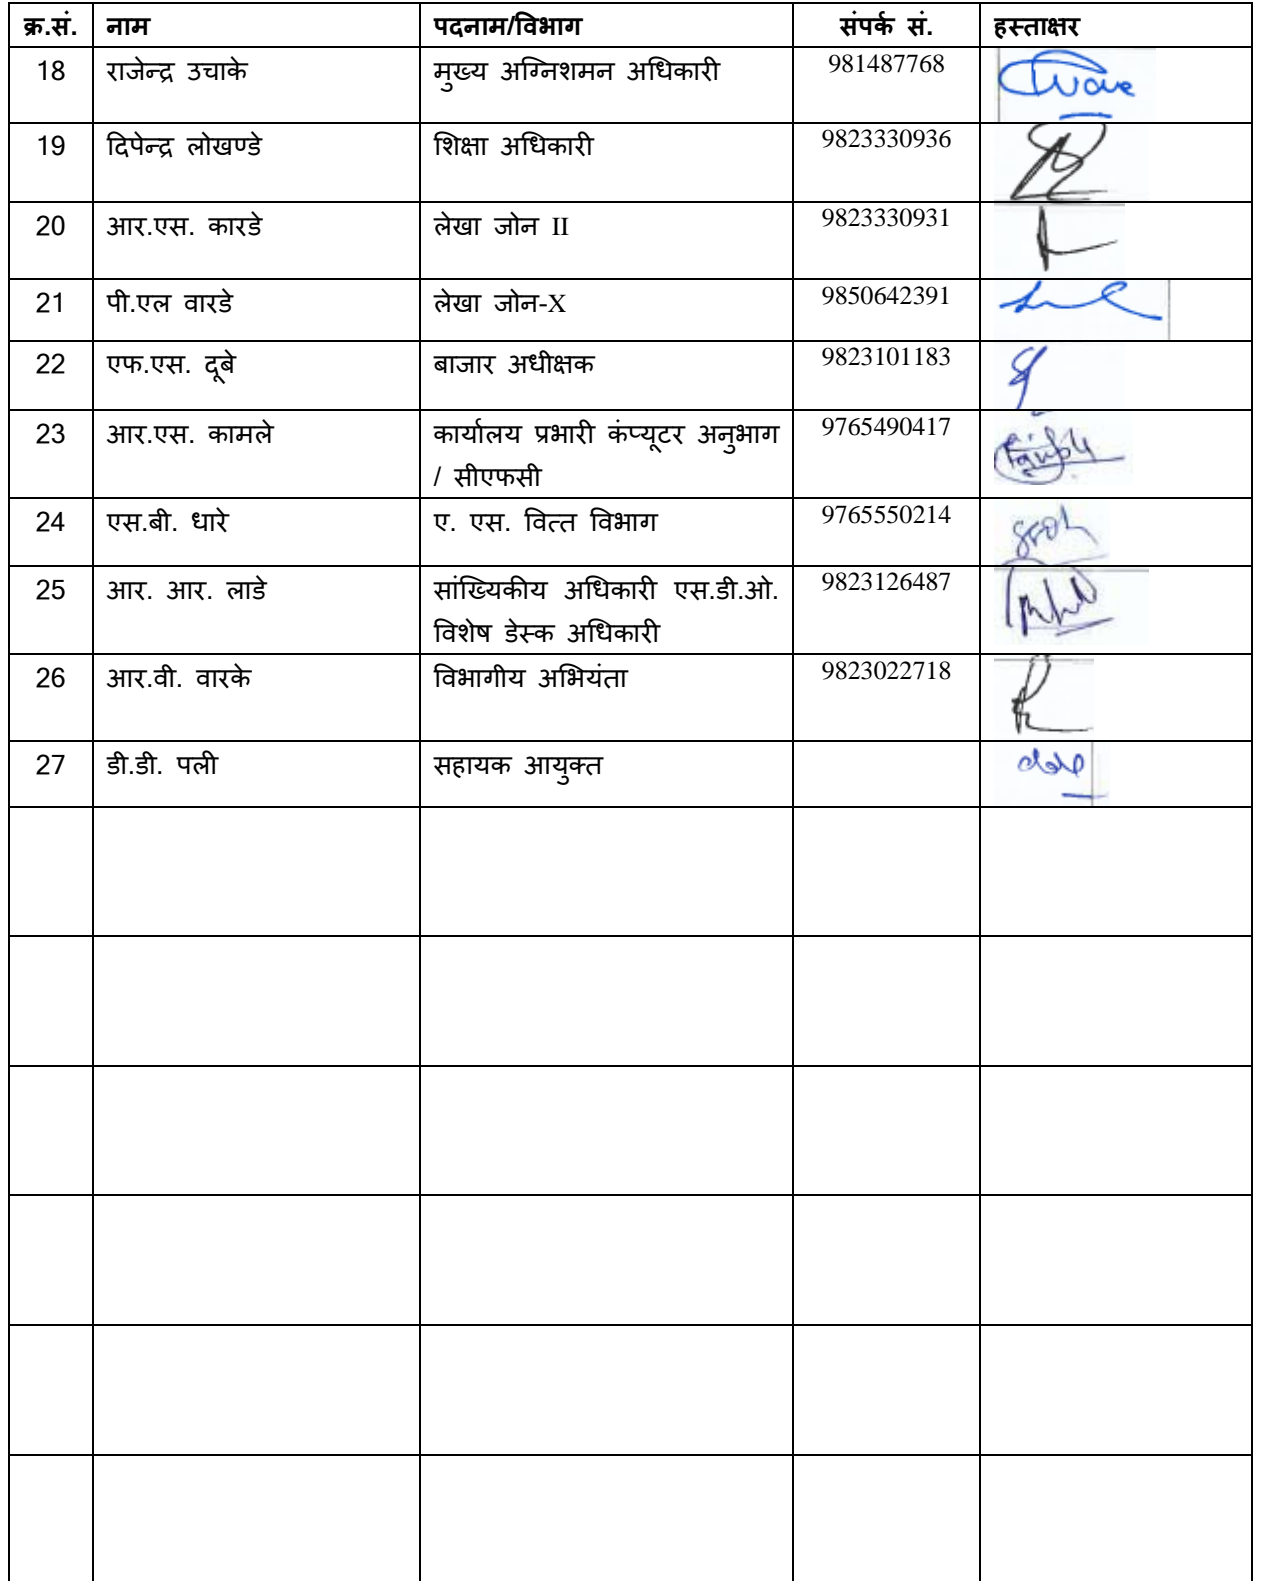 क्र.सं. नाम पदनाम/विभाग संपर्क सं. हस्ताक्षर
18 राजेन्द्र उचाके मुख्य अग्निशमन अधिकारी 981487768
19 दिपेन्द्र लोखण्डे शिक्षा अधिकारी 9823330936
20 आर.एस. कारडे लेखा जोन II 9823330931
21 पी.एल वारडे लेखा जोन-X 9850642391
22 एफ.एस. दूबे बाजार अधीक्षक 9823101183
23 आर.एस. कामले कार्यालय प्रभारी कंप्यूटर अनुभाग 9765490417
/ सीएफसी
24 एस.बी. धारे ए. एस. वित्त विभाग 9765550214
25 आर. आर. लाडे सांख्यिकीय अधिकारी एस.डी.ओ. 9823126487
विशेष डेस्क अधिकारी
26 आर.वी. वारके विभागीय अभियंता 9823022718
27 डी.डी. पली सहायक आयुक्त